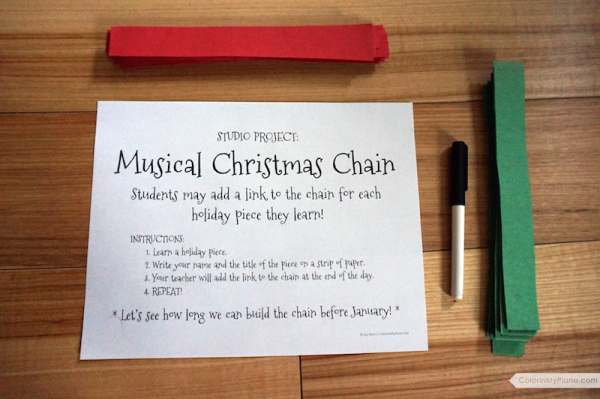 STUDIO PROJECT:
Musical Christmas Chain
Students may add a link to the chain for each
holiday piece they learn!
INSTRUCTIONS:
1. Learn a holiday piece.
2. Write your name and the title of the piece on a strip of paper.
3. Your teacher will add the link to the chain at the end of the day.
4. REPEAT!
* Let's see how long we can build the chain before January! *
ColorInMyPiano.com